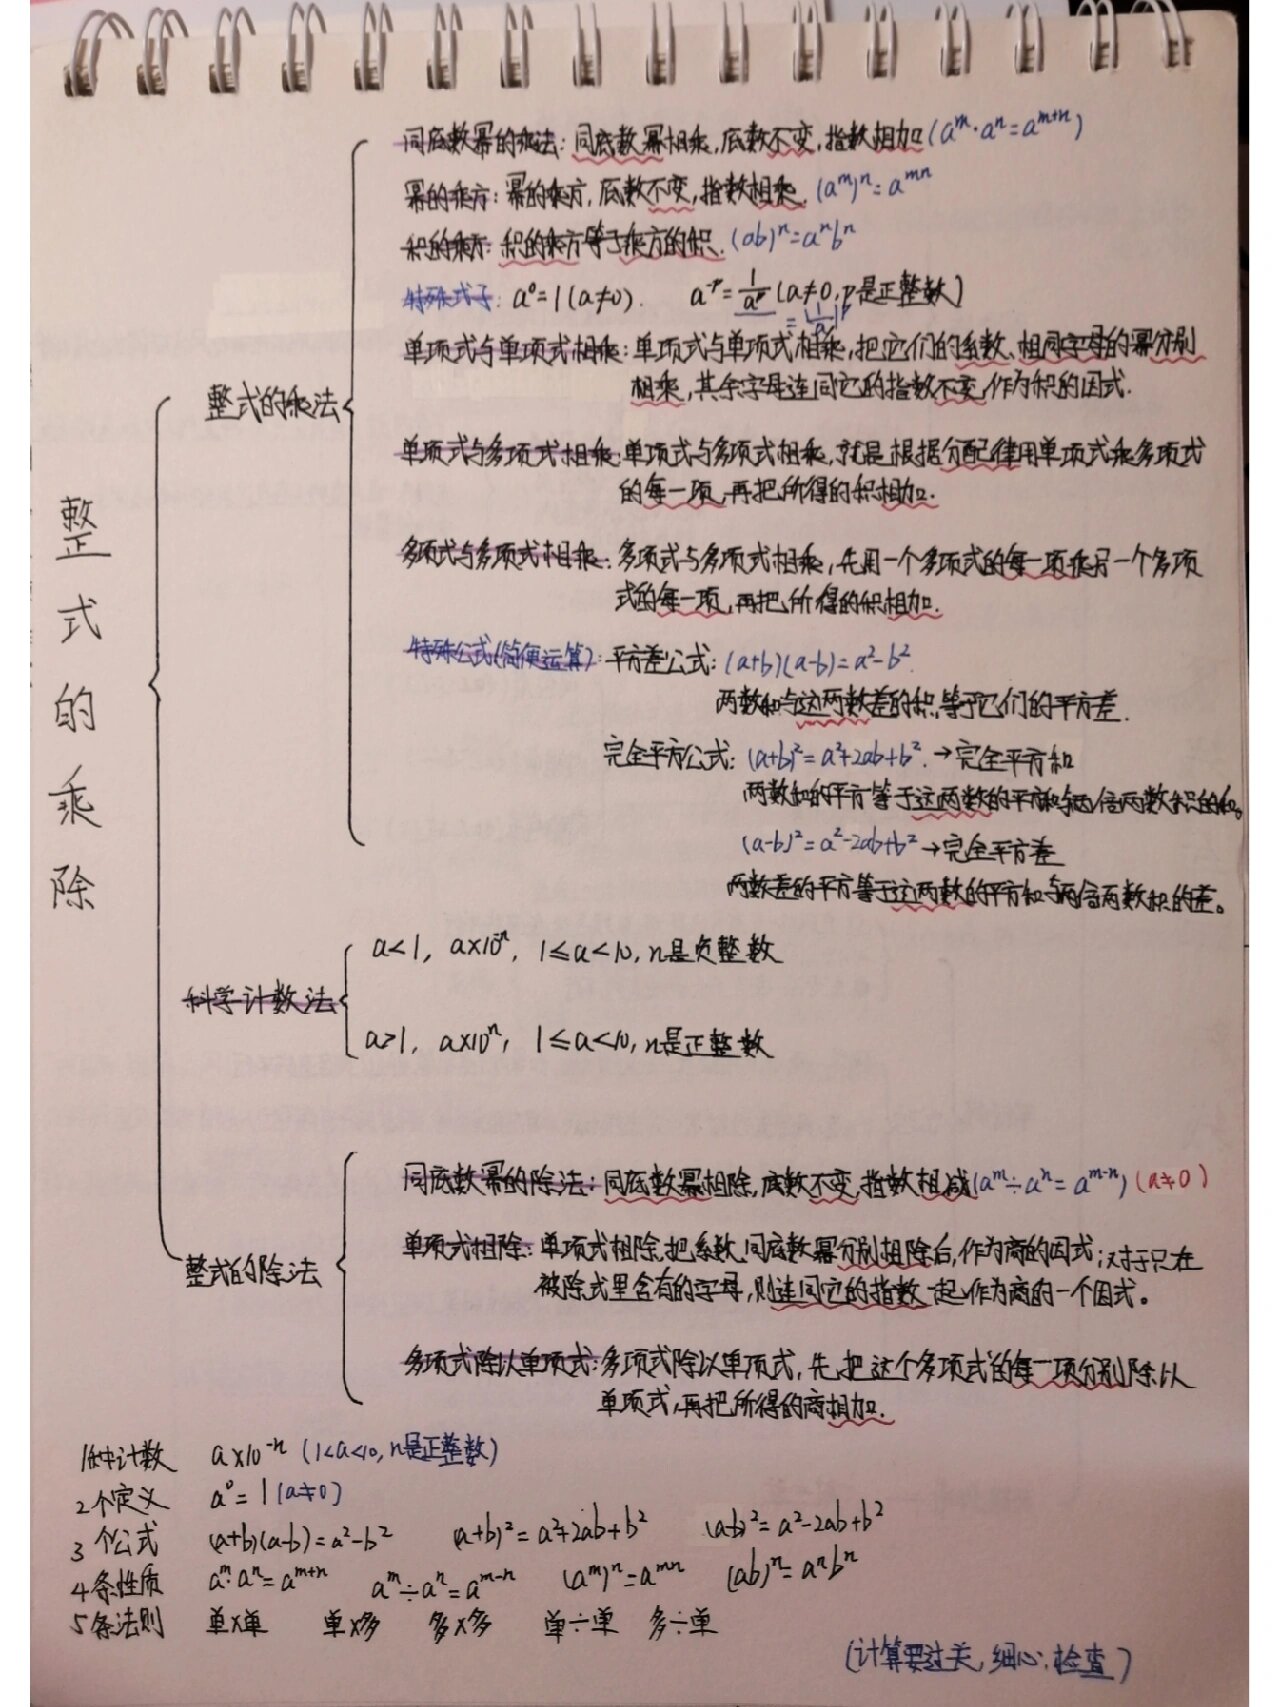 整式的乘除
整式的乘法
同底数幂的乘法：同底数幂相乘，底数不变，指数相加（aᵐ·aⁿ=aᵐ⁺ⁿ）
幂的乘方：幂的乘方，底数不变，指数相乘．(aᵐ)ⁿ=aᵐⁿ
积的乘方：积的乘方等于乘方的积．(ab)ⁿ=aⁿbⁿ
特殊式子：a⁰=1(a≠0)． a⁻ᵖ=1/aᵖ(a≠0,p是正整数)
=(1/a)ᵖ
单项式与单项式相乘：单项式与单项式相乘，把它们的系数、相同字母的幂分别
相乘，其余字母连同它的指数不变，作为积的因式．
单项式与多项式相乘：单项式与多项式相乘，就是根据分配律用单项式乘多项式
的每一项，再把所得的积相加．
多项式与多项式相乘：多项式与多项式相乘，先用一个多项式的每一项乘另一个多项
式的每一项，再把所得的积相加．
特殊公式(简便运算)：平方差公式：(a+b)(a-b)=a²-b²．
两数和与这两数差的积，等于它们的平方差．
完全平方公式：(a+b)²=a²+2ab+b²．→完全平方和
两数和的平方等于这两数的平方和与两倍两数积的和。
(a-b)²=a²-2ab+b²→完全平方差
两数差的平方等于这两数的平方和与两倍两数积的差。
科学计数法
a<1，a×10⁻ⁿ，1≤a<10，n是负整数
a>1，a×10ⁿ，1≤a<10，n是正整数
整式的除法
同底数幂的除法：同底数幂相除，底数不变，指数相减(aᵐ÷aⁿ=aᵐ⁻ⁿ)(a≠0)
单项式相除：单项式相除，把系数，同底数幂分别相除后，作为商的因式；对于只在
被除式里含有的字母，则连同它的指数一起作为商的一个因式。
多项式除以单项式：多项式除以单项式，先把这个多项式的每一项分别除以
单项式，再把所得的商相加．
1种计数 a×10⁻ⁿ(1<a<10,n是正整数)
2个定义 a⁰=1(a≠0)
3个公式 (a+b)(a-b)=a²-b² (a+b)²=a²+2ab+b² (a-b)²=a²-2ab+b²
4条性质 aᵐ·aⁿ=aᵐ⁺ⁿ aᵐ÷aⁿ=aᵐ⁻ⁿ (aᵐ)ⁿ=aᵐⁿ (ab)ⁿ=aⁿbⁿ
5条法则 单×单 单×多 多×多 单÷单 多÷单
(计算要过关，细心，检查)